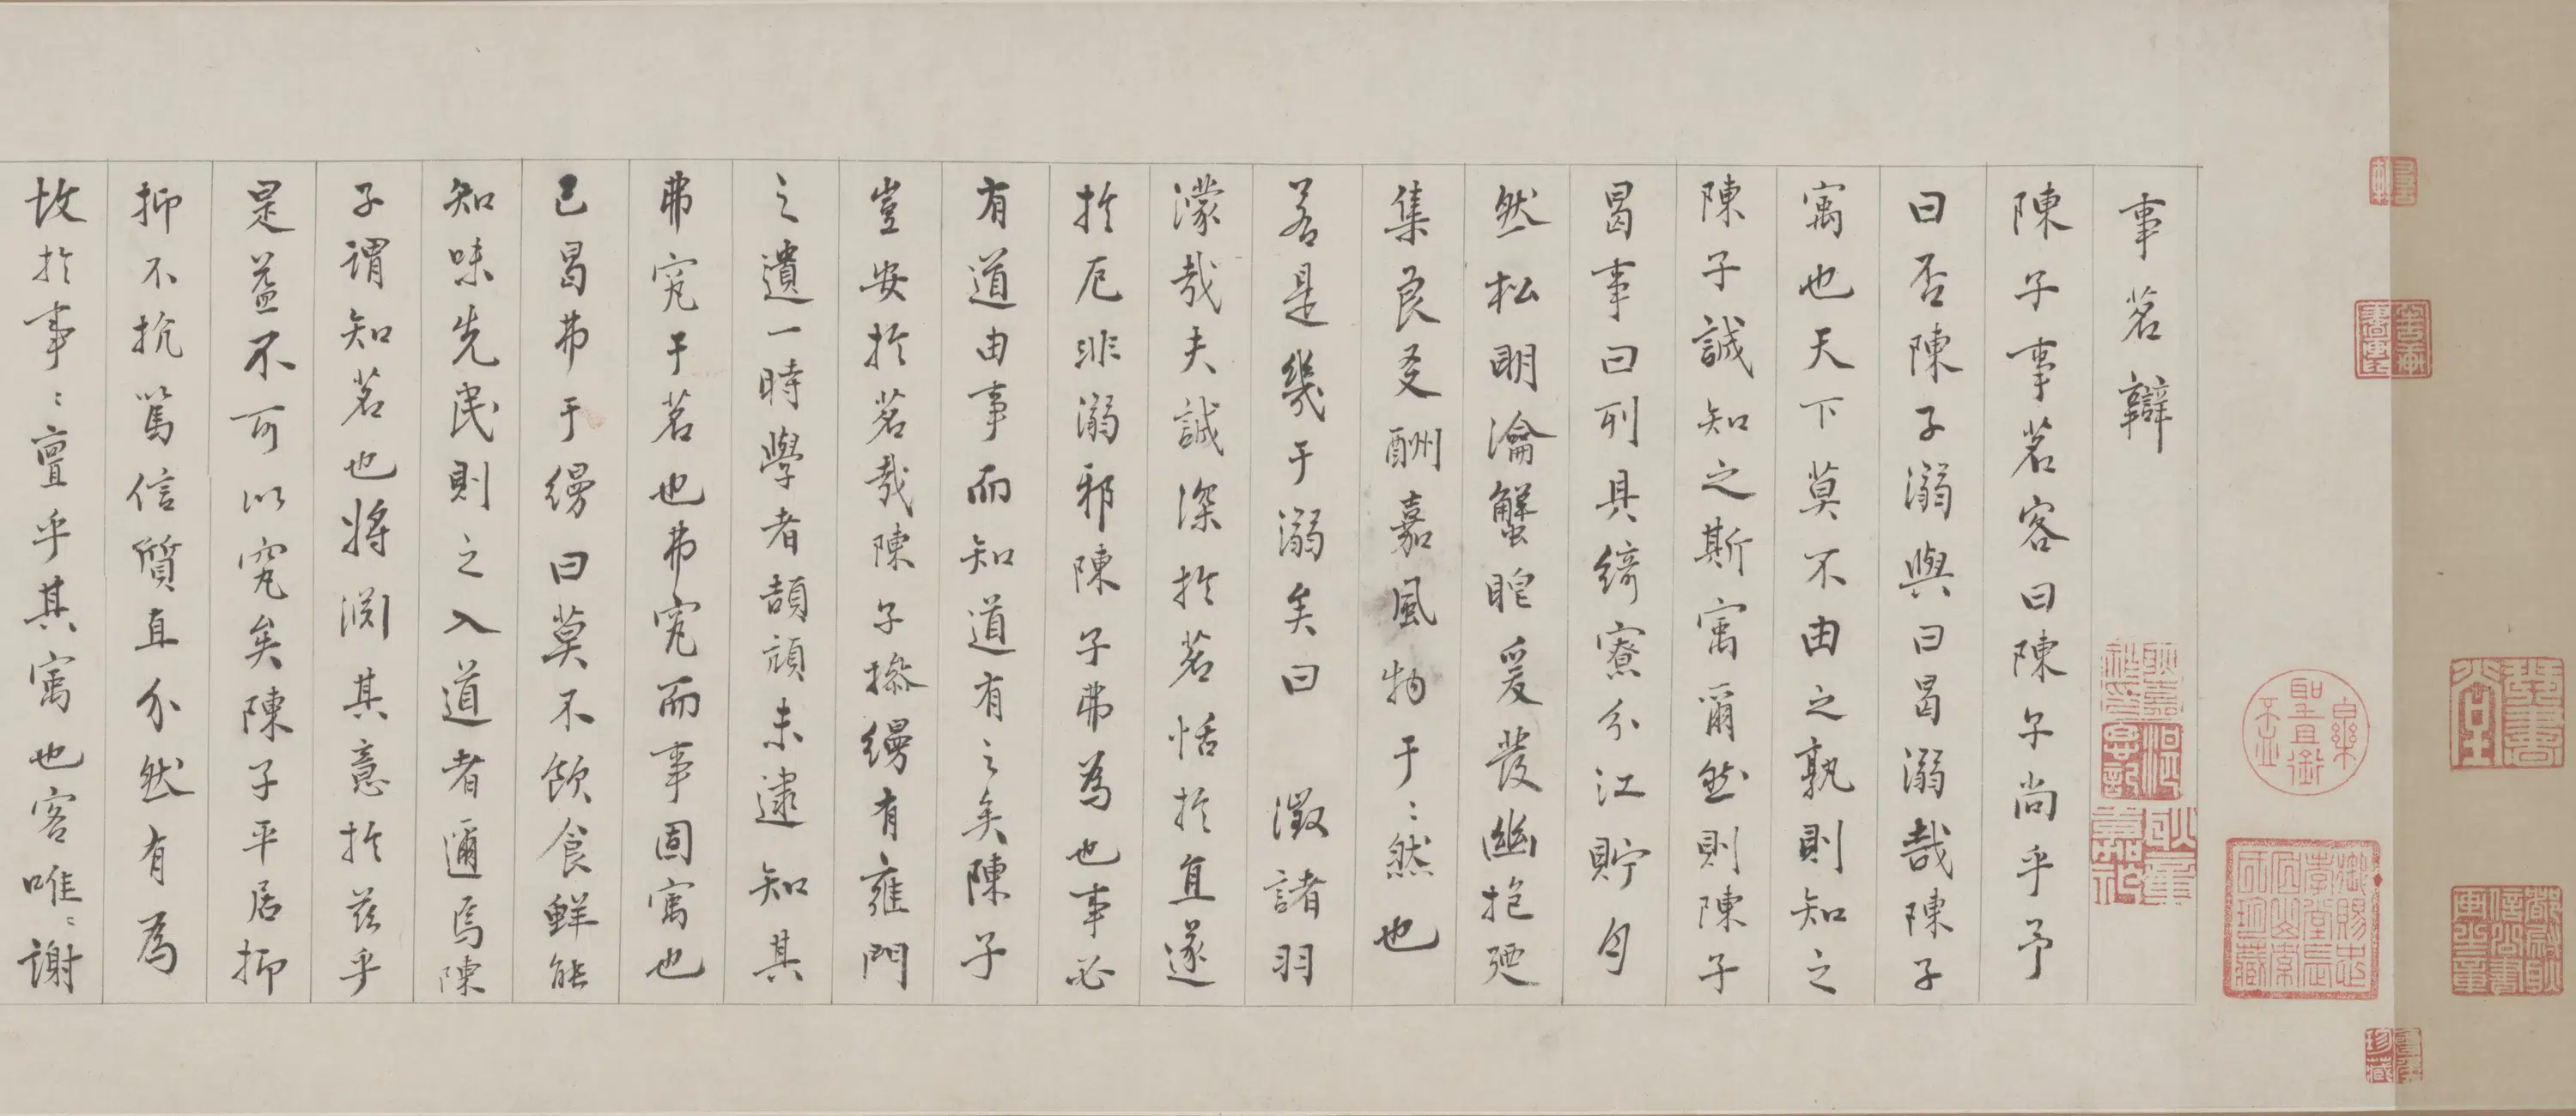 事茗辯
陳子事茗客曰陳子尚乎予
曰否陳子溺與曰曷溺哉陳子
寓也天下莫不由之孰則知之
陳子誠知之斯寓爾然則陳子
曷事曰列具綺寮分江貯月
然松明瀹蟹眼爰發幽抱廼
集良友酬嘉風物于〻然也
若是幾于溺矣曰 澂諸羽
濛哉夫誠深於茗恬於直遂
於厄非溺邪陳子弗為也事必
有道由事而知道有之矣陳子
豈安於茗哉陳子操縵有雍門
之遺一時學者頡頏未逮知其
弗究于茗也弗究而事固寓也
已曷弗于縵曰莫不飲食鮮能
知味先民則之入道者邇焉陳
子謂知茗也將渕其意於茲乎
是益不可以究矣陳子平居抑
抑不抗篤信質直介然有為
故於事〻亶乎其寓也客唯〻謝